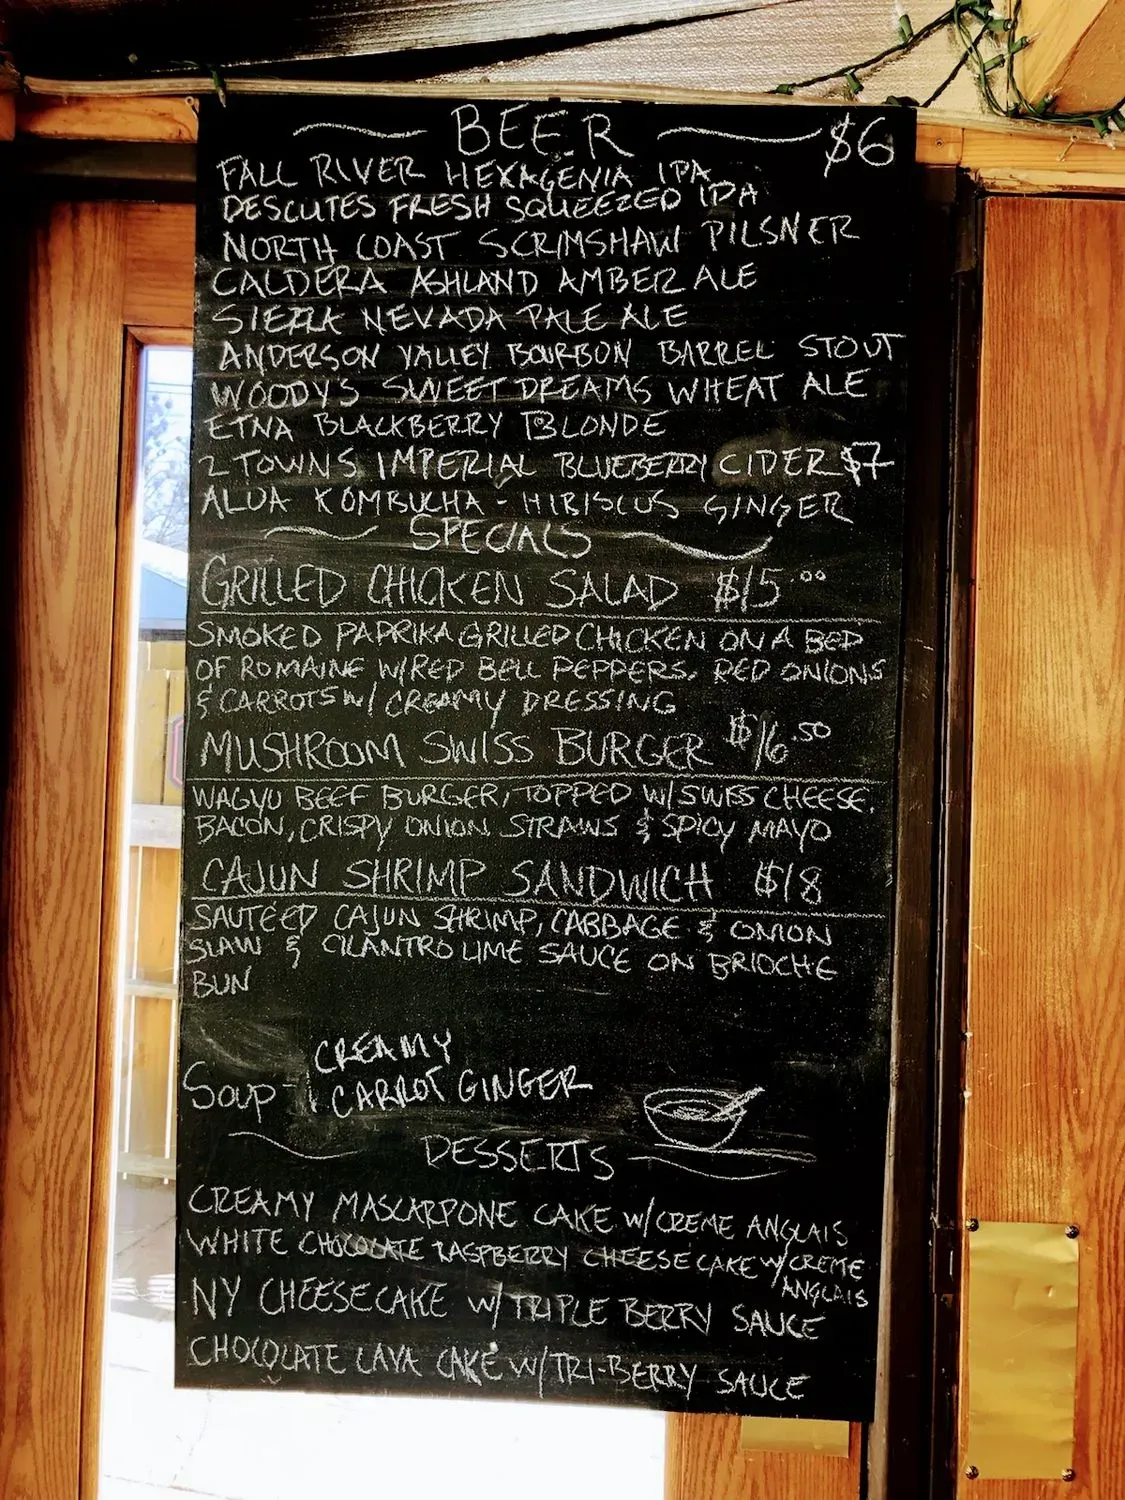 BEER $6
FALL RIVER HEXAGENIA IPA
DESCUTES FRESH SQUEEZED IPA
NORTH COAST SCRIMSHAW PILSNER
CALDERA ASHLAND AMBER ALE
SIERRA NEVADA PALE ALE
ANDERSON VALLEY BOURBON BARREL STOUT
WOODY'S SWEET DREAMS WHEAT ALE
ETNA BLACKBERRY BLONDE
2 TOWNS IMPERIAL BLUEBERRY CIDER $7
ALUA KOMBUCHA - HIBISCUS GINGER
SPECIALS
GRILLED CHICKEN SALAD $15.00
SMOKED PAPRIKA GRILLED CHICKEN ON A BED
OF ROMAINE W/RED BELL PEPPERS, RED ONIONS
& CARROTS W/ CREAMY DRESSING
MUSHROOM SWISS BURGER $16.50
WAGYU BEEF BURGER, TOPPED W/SWISS CHEESE,
BACON, CRISPY ONION STRAWS & SPICY MAYO
CAJUN SHRIMP SANDWICH $18
SAUTEED CAJUN SHRIMP, CABBAGE & ONION
SLAW & CILANTRO LIME SAUCE ON BRIOCHE
BUN
CREAMY
SOUP - CARROT GINGER
DESSERTS
CREAMY MASCARPONE CAKE W/CREME ANGLAIS
WHITE CHOCOLATE RASPBERRY CHEESECAKE W/CREME
ANGLAIS
NY CHEESECAKE W/TRIPLE BERRY SAUCE
CHOCOLATE LAVA CAKE W/TRI-BERRY SAUCE